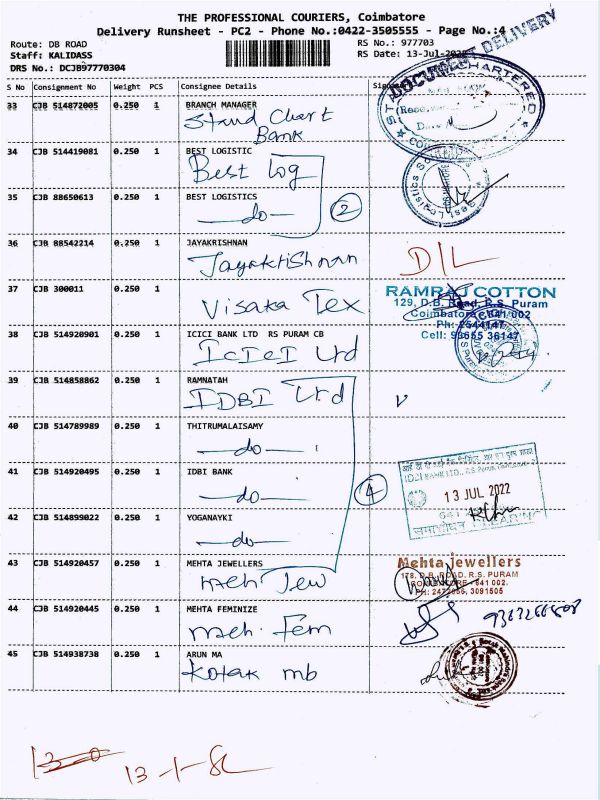 THE PROFESSIONAL COURIERS, Coimbatore
Delivery Runsheet - PC2 - Phone No.:0422-3505555 - Page No.:4
Route: DB ROAD
Staff: KALIDASS
DRS No.: DCJB97770304
RS No.: 977703
RS Date: 13-Jul-2022
DOCUMENT DELIVERY
S No Consignment No Weight PCS Consignee Details
33 CJB 514872005 0.250 1 BRANCH MANAGER
Stand Chart
Bank
34 CJB 514419081 0.250 1 BEST LOGISTIC
Best Log
35 CJB 88650613 0.250 1 BEST LOGISTICS
do
2
36 CJB 88542214 0.250 1 JAYAKRISHNAN
Jayakrishnan
D/L
37 CJB 300011 0.250 1
Visaka Tex
RAMRAJ COTTON
129, D.B. Road, R.S. Puram
Coimbatore - 641 002
Ph: 2544147
Cell: 93655 36147
38 CJB 514920901 0.250 1 ICICI BANK LTD RS PURAM CB
ICICI Ltd
39 CJB 514858862 0.250 1 RAMNATAH
IDBI Ltd
40 CJB 514789989 0.250 1 THITRUMALAISAMY
do
41 CJB 514920495 0.250 1 IDBI BANK
do
4
13 JUL 2022
42 CJB 514899022 0.250 1 YOGANAYKI
do
43 CJB 514920457 0.250 1 MEHTA JEWELLERS
meh Jew
Mehta jewellers
178, D.B. ROAD, R.S. PURAM
COIMBATORE - 641 002.
44 CJB 514920445 0.250 1 MEHTA FEMINIZE
meh. Fem
45 CJB 514938738 0.250 1 ARUN MA
Kotak mb
13-1-82